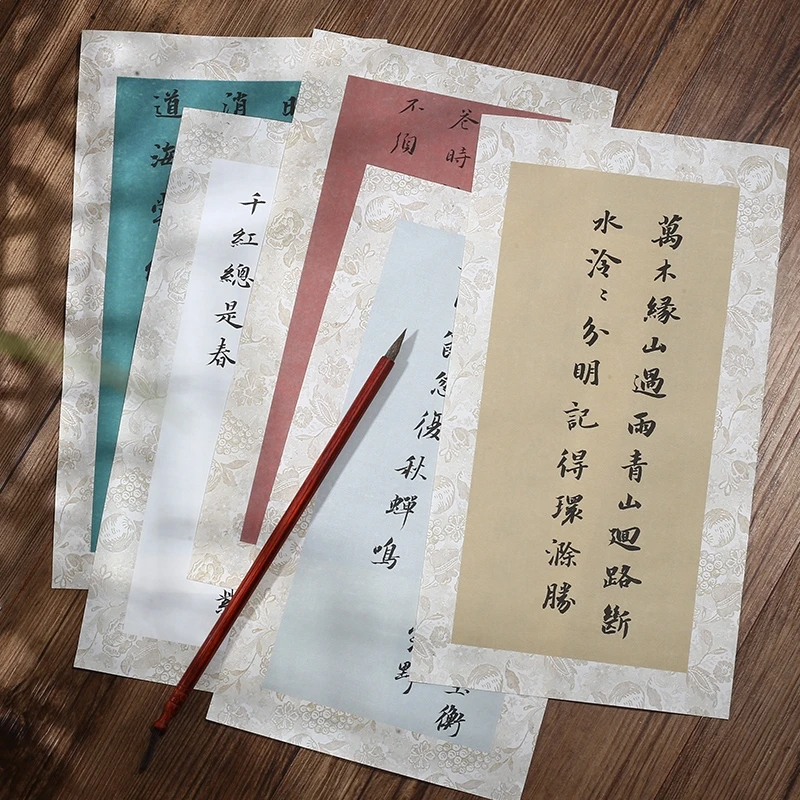 萬木緣山遇雨青山廻路斷
水泠〻分明記得環滁勝
衡
野
忽復秋蟬鳴
時
不須
紫
千紅總是春
消
道海